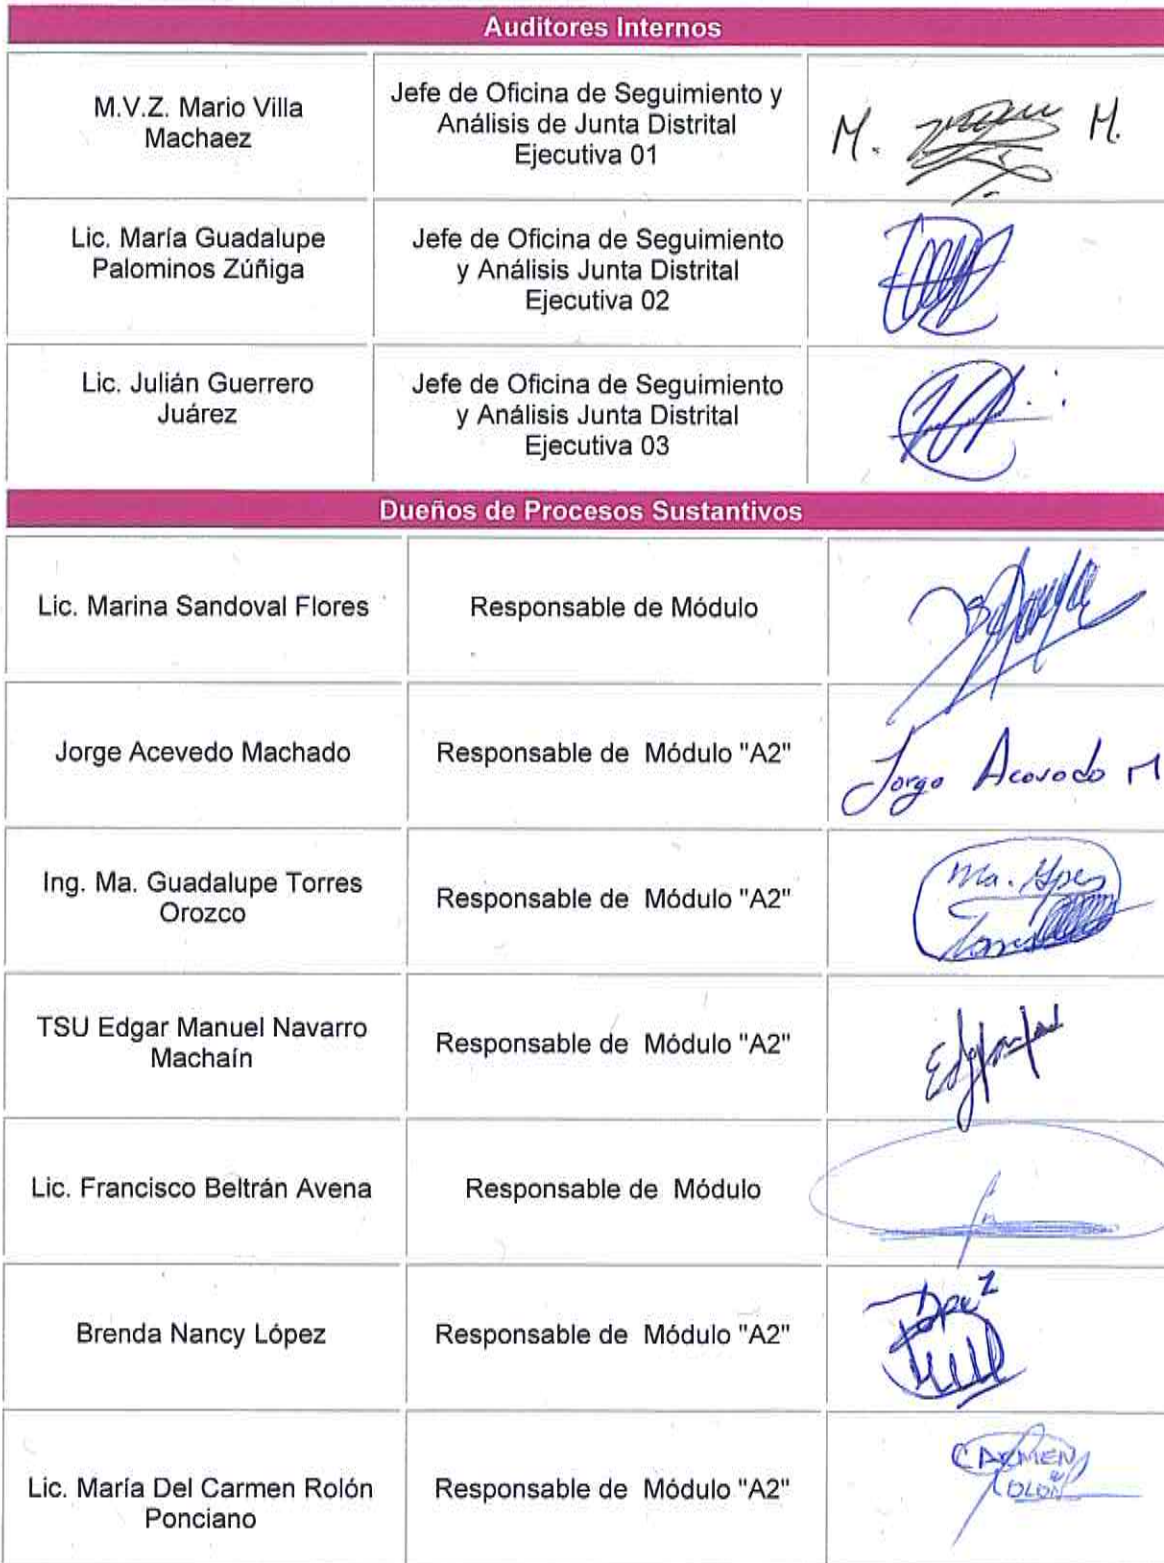 Auditores Internos
M.V.Z. Mario Villa
Machaez
Jefe de Oficina de Seguimiento y
Análisis de Junta Distrital
Ejecutiva 01
M. M.
Lic. María Guadalupe
Palominos Zúñiga
Jefe de Oficina de Seguimiento
y Análisis Junta Distrital
Ejecutiva 02
Lic. Julián Guerrero
Juárez
Jefe de Oficina de Seguimiento
y Análisis Junta Distrital
Ejecutiva 03
Dueños de Procesos Sustantivos
Lic. Marina Sandoval Flores
Responsable de Módulo
Jorge Acevedo Machado
Responsable de Módulo "A2"
Jorge Acevedo M
Ing. Ma. Guadalupe Torres
Orozco
Responsable de Módulo "A2"
Ma.
TSU Edgar Manuel Navarro
Machaín
Responsable de Módulo "A2"
Lic. Francisco Beltrán Avena
Responsable de Módulo
Brenda Nancy López
Responsable de Módulo "A2"
Lic. María Del Carmen Rolón
Ponciano
Responsable de Módulo "A2"
CARMEN
ROLON